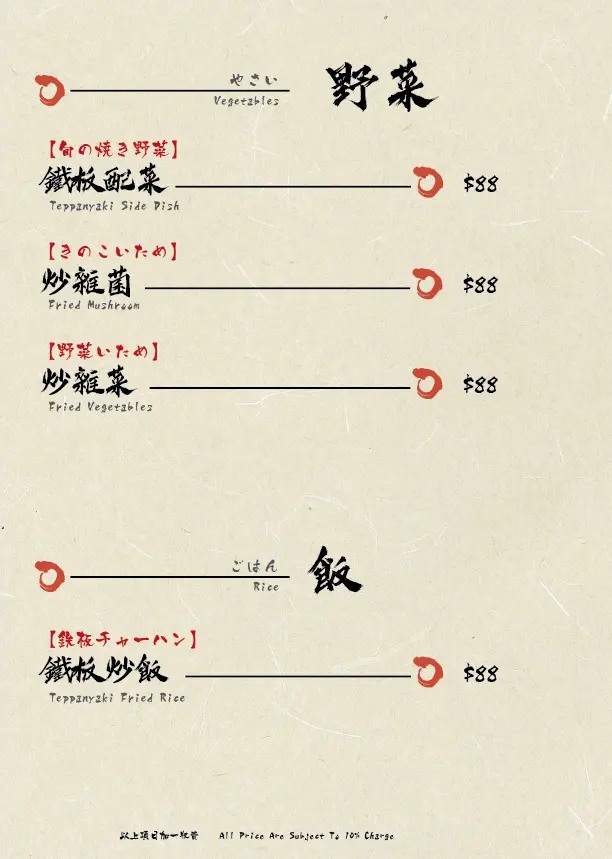 やさい
Vegetables
野菜
【旬の焼き野菜】
鐵板配菜
$88
Teppanyaki Side Dish
【きのこいため】
炒雜菌
$88
Fried Mushroom
【野菜いため】
炒雜菜
$88
Fried Vegetables
ごはん
Rice
飯
【鉄板チャーハン】
鐵板炒飯
$88
Teppanyaki Fried Rice
以上項目加一收費 All Price Are Subject To 10% Charge